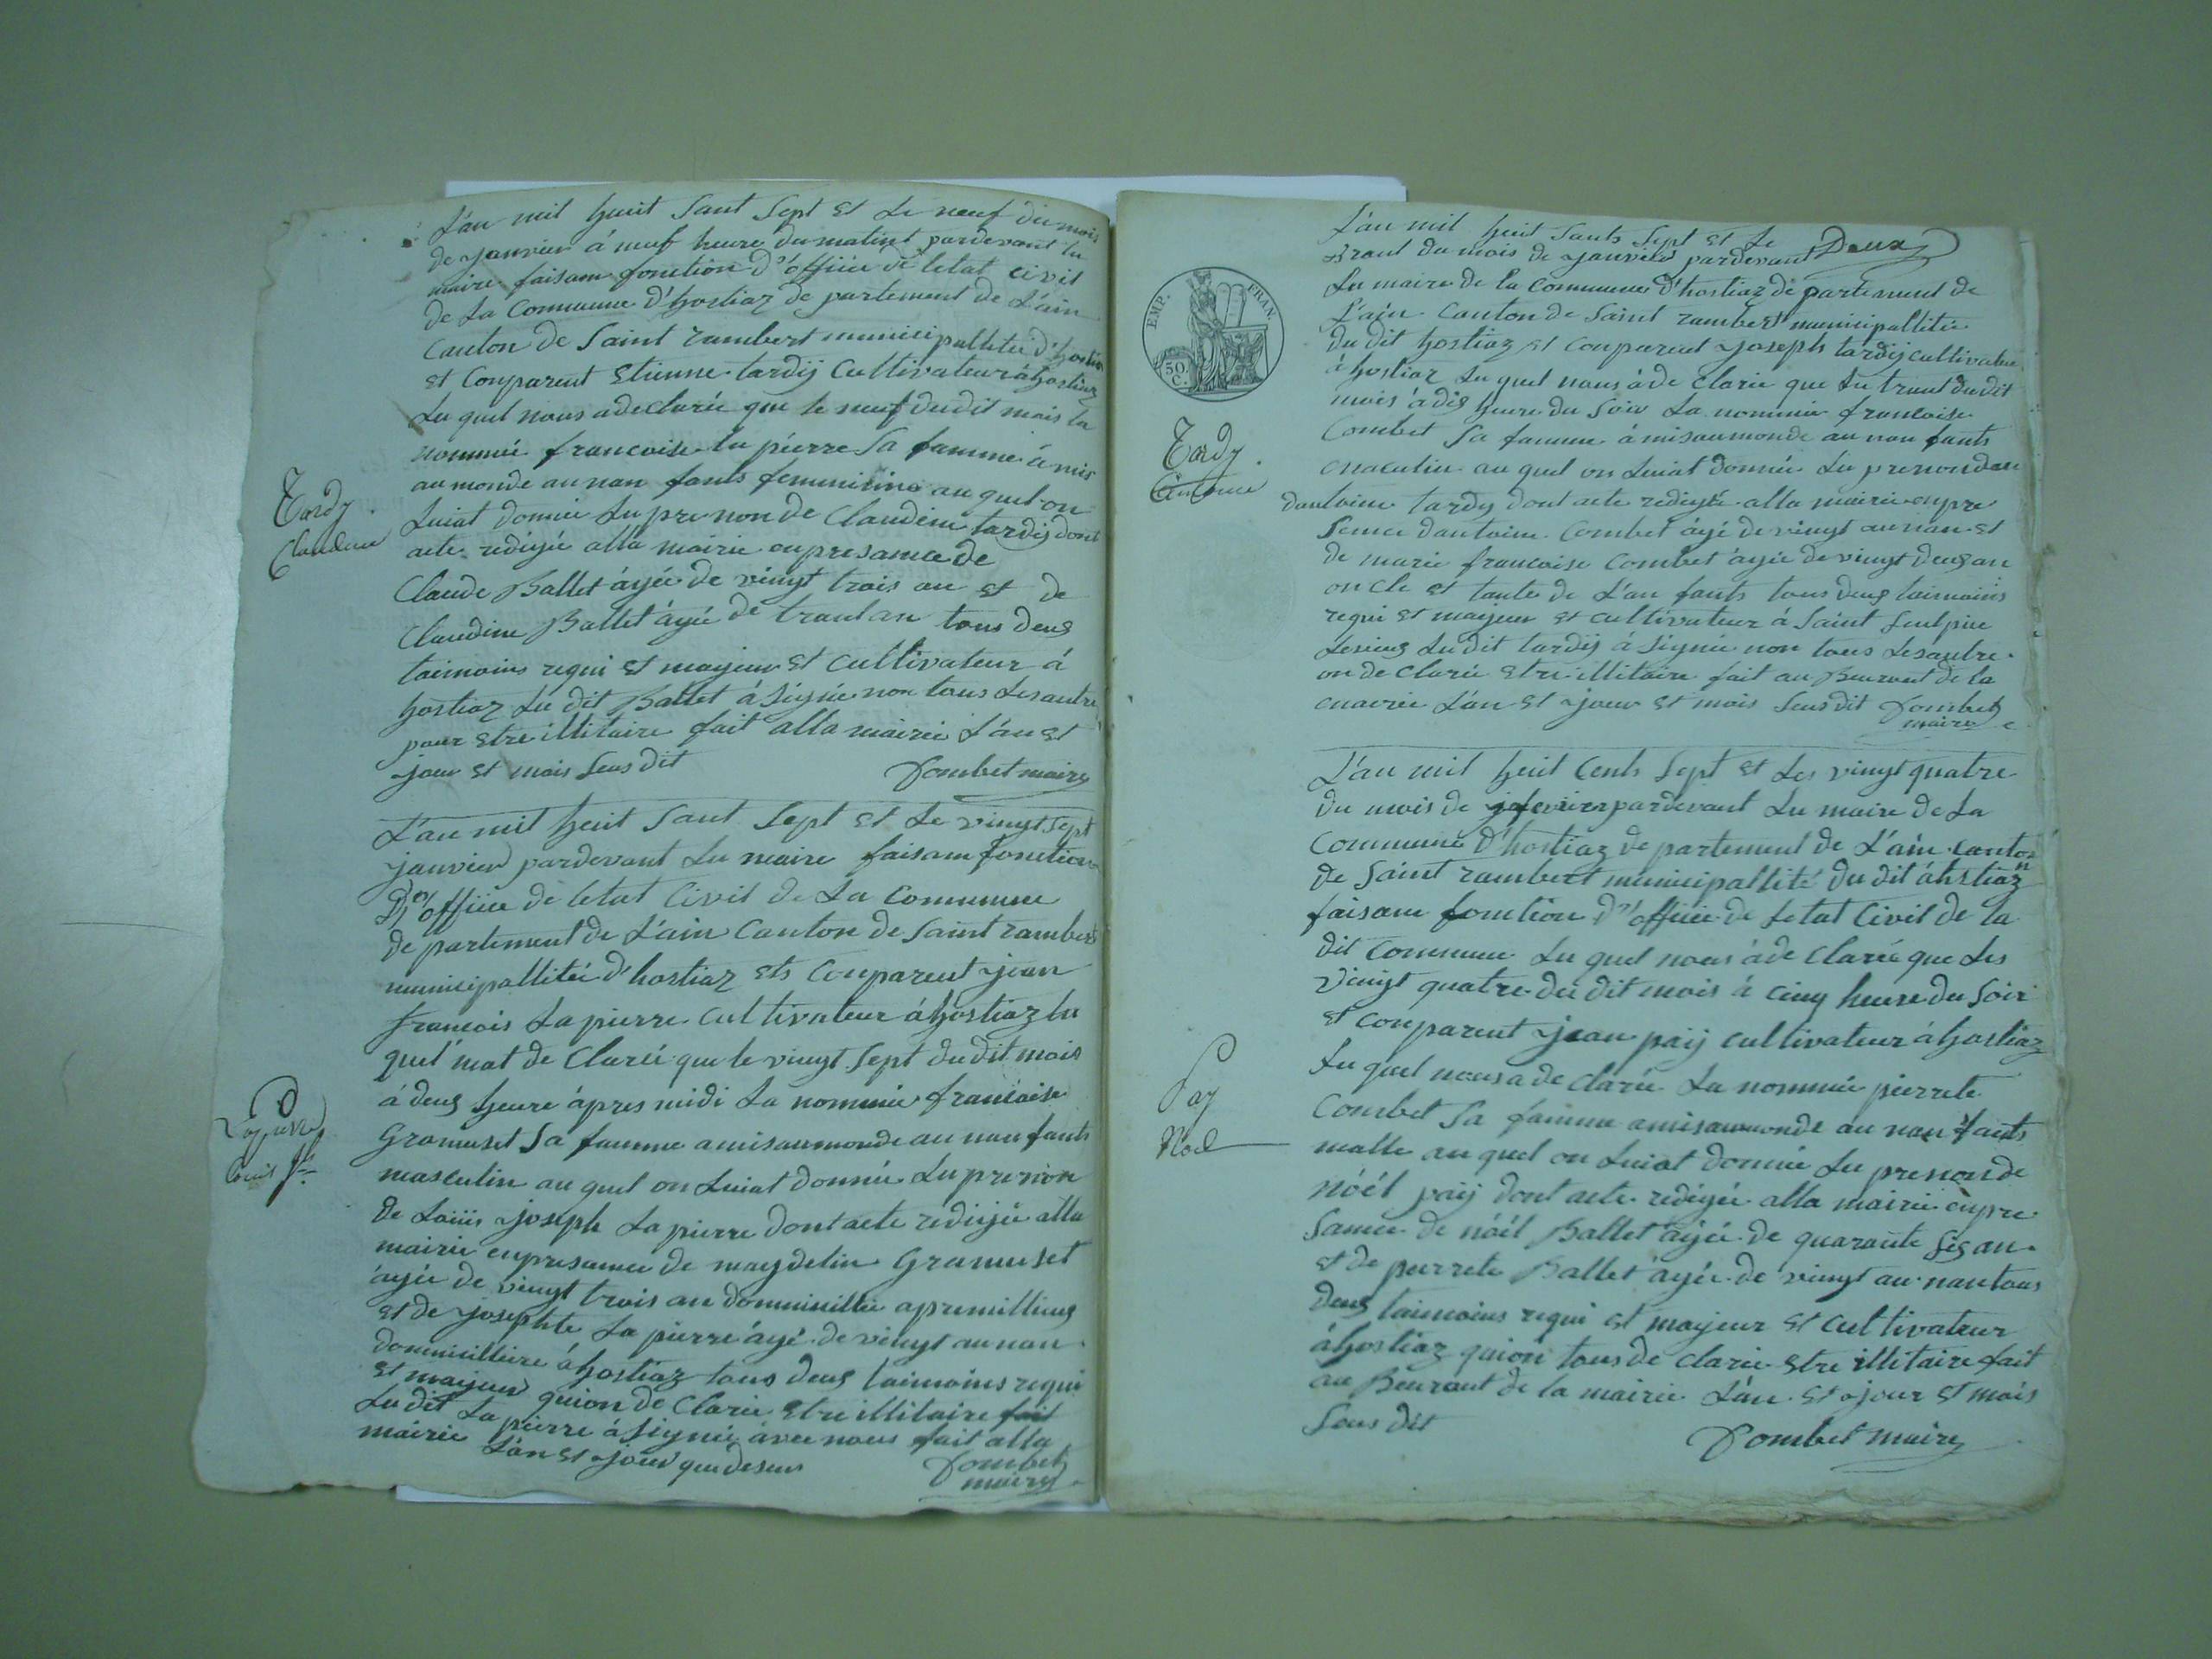 L'an mil huit Sant Sept et Le neuf du mois
de janvier à neuf heure du matint pardevant lu
maire faisam fonction D'office de letat civil
de La Commune d'hostiaz de partement de L'ain
Canton de Saint rambert municipallitée d'hostiaz
et Conparent Etienne tardij Cultivateur àhostiaz
Lu quel nous adeclarée que le neuf dudit mois la
nommée francoise la pierre Sa famme à mis
au monde au nan fants feminine au quel on
Luiat donnée Lu pre non de Claudine tardij dont
acte redigée alla mairie en presance de
Claude Ballet âgée de vingt trois an et de
Claudine Ballet âgé de trant an tous deus
taimoins requi et majeur et cultivateur à
hostiaz Lu dit Ballet à Signée non tous Lesautre
pour etre illitaire fait alla mairie L'an et
jour et mois Sus dit
Combet maire
Tardy
Claudine
L'an mil heuit Sant Sept et Le vingt Sept
janvier pardevant Lu maire faisam fonction
D'office de letat Civil de La Commune
de partement de L'ain Canton de Saint rambert
municipallitée d'hostiaz ets Conparent jean
francois La pierre cultivateur àhostiaz lu
quel mat de Clarée que le vingt Sept dudit mois
à deus heure àpres midi La nommée francaise
Gramuset Sa famme amisaumonde au nan fants
masculin au quel on Luiat donnée Lu prenon
de Louis joseph La pierre dont acte redigée alla
mairie enpresance de magdelin Gramuset
âgée de vingt trois an dommicillée apremillieus
et de josephte La pierre âgé de vingt au nan
dommicilliere à hostiaz tous deus taimoins requi
et majeur quion de Clarée etre illitaire fait
Ludit La pierre à Signée avec nous fait alla
mairie L'an et jour que desus
Combet
maire
Lapierre
Louis Jh
Deux
L'an mil heuit Sants Sept et Le
trant du mois de janvier pardevant
Lu maire de la Commune d'hostiaz de partement de
L'ain Canton de Saint rambert municipallitée
du dit hostiaz et Conparent joseph tardij cultivateur
à hostiaz Lu quel nous à de clarée que Lu trant dudit
mois à dis heure du Soir La nommée francoise
Combet Sa famme à misaumonde au nan fants
masculin au quel on Luiat donnée Lu prenon dan
dantoine tardy dont acte redigée alla mairie enpre
Sence dantoine Combet âgé de vingt au nan et
de marie francoise Combet âgée de vingt deus an
oncle et tante de L'an fants tous deus taimoins
requi et majeur et cultivateur à Saint Sulpice
Levieus Ludit tardij à Signée non tous Lesautre
on de Clarée etre illitaire fait au Beuraut de la
mairie L'an et jour et mois Susdit
Combet
maire
EMP. FRAN.
50. C.
Tardy
Antoine
L'an mil heuit Cents Sept et Les vingt quatre
du mois de fevrier pardevant Lu maire de La
Commune D'hostiaz de partement de L'ain canton
de Saint rambert municipallité du dit àhstiaz
faisam fonction D'office de Letat Civil de la
dit Commune Lu quel nous à de Clarée que Les
vingt quatre du dit mois à cinq heure du Soir
et Conparent jean paij cultivateur àhostiaz
Lu quel nous a de clarée La nommée pierrete
Combet Sa famme amisaumonde au nan fants
malle au quel on Luiat donnée Lu prenon de
nóél paij dont acte redigée alla mairie enpre
Sance de nóél Ballet âgée de quarante Sis an
et de pierrete Ballet âgée de vingt au nan tous
deus taimoins requi et majeur et cultivateur
àhostiaz quion tous de clarée etre illitaire fait
au Beuraut de la mairie L'an et jour et mois
Sus dit
Combet maire
Pay
Noel